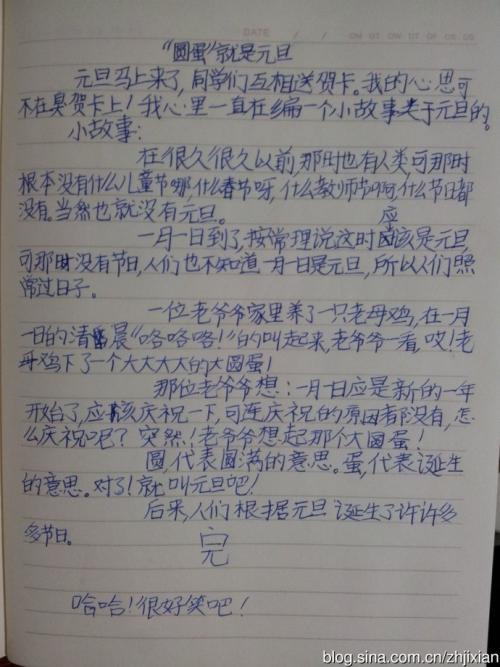 DATE / /
"圆蛋"就是元旦
元旦马上来了,同学们互相送贺卡。我的心思可
不在臭贺卡上!我心里一直在编一个小故事关于元旦的。
小故事:
在很久很久以前,那时也有人类,可那时
根本没有什么儿童节哪,什么春节呀,什么教师节啊,什么节日都
没有。当然也就没有元旦。
一月一日到了,按常理说这时应该是元旦,
可那时没有节日,人们也不知道一月一日是元旦,所以人们照
常过日子。
一位老爷爷家里养了一只老母鸡,在一月
一日的清晨"咯咯咯!"的叫起来,老爷爷一看,哎!老
母鸡下了一个大大大大的大圆蛋!
那位老爷爷想:一月一日应是新的一年
开始了,应该庆祝一下,可连庆祝的原因都没有,怎
么庆祝呢?突然!老爷爷想起那个大圆蛋!
圆,代表圆满的意思。蛋,代表诞生
的意思。对了!就叫元旦吧!
后来,人们根据元旦诞生了许许多
多节日。
完
哈哈!很好笑吧!
blog.sina.com.cn/zhjixian